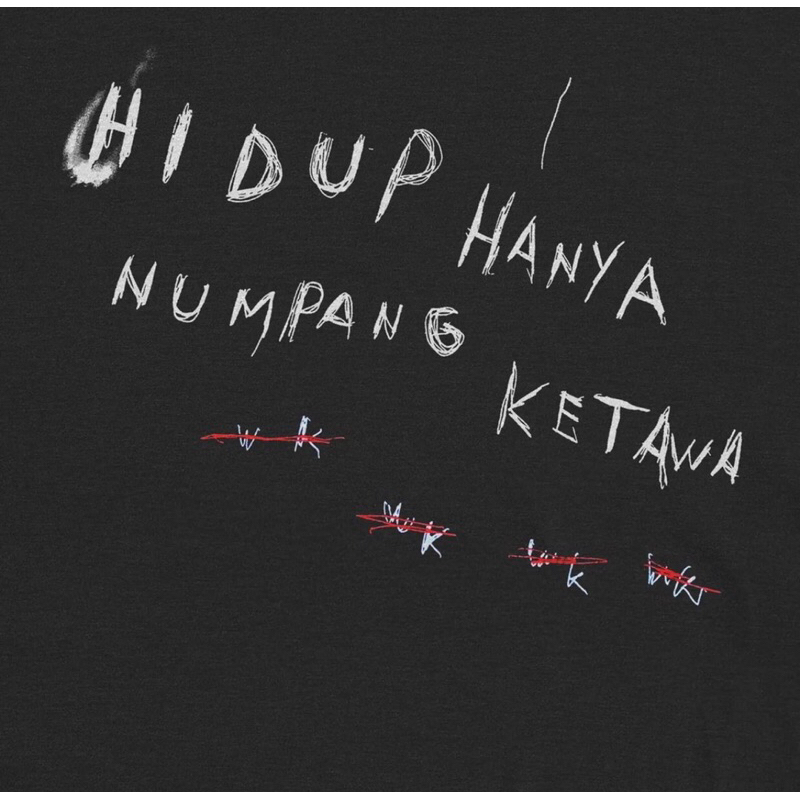 HIDUP HANYA
NUMPANG KETAWA
w k
w k w k w k